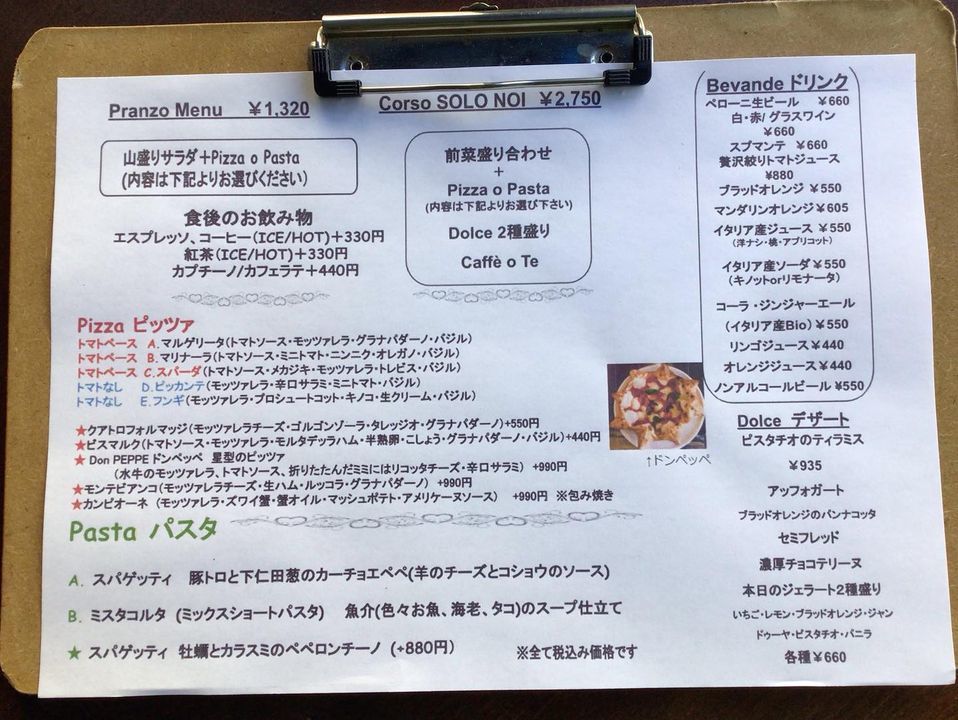 Pranzo Menu ￥1,320
山盛りサラダ＋Pizza o Pasta
(内容は下記よりお選びください)
食後のお飲み物
エスプレッソ、コーヒー(ICE/HOT)＋330円
紅茶(ICE/HOT)＋330円
カプチーノ/カフェラテ＋440円
Corso SOLO NOI ￥2,750
前菜盛り合わせ
＋
Pizza o Pasta
(内容は下記よりお選び下さい)
Dolce 2種盛り
Caffè o Te
Bevande ドリンク
ペローニ生ビール ￥660
白・赤/ グラスワイン
￥660
スプマンテ ￥660
贅沢絞りトマトジュース
¥880
ブラッドオレンジ ￥550
マンダリンオレンジ￥605
イタリア産ジュース ￥550
(洋ナシ・桃・アプリコット)
イタリア産ソーダ￥550
(キノットorリモナータ)
コーラ・ジンジャーエール
(イタリア産Bio)￥550
リンゴジュース￥440
オレンジジュース￥440
ノンアルコールビール ¥550
Pizza ピッツァ
トマトベース A.マルゲリータ(トマトソース・モッツァレラ・グラナパダーノ・バジル)
トマトベース B.マリナーラ(トマトソース・ミニトマト・ニンニク・オレガノ・バジル)
トマトベース C.スパーダ(トマトソース・メカジキ・モッツァレラ・トレビス・バジル)
トマトなし D.ピッカンテ(モッツァレラ・辛口サラミ・ミニトマト・バジル)
トマトなし E.フンギ(モッツァレラ・プロシュートコット・キノコ・生クリーム・バジル)
★クアトロフォルマッジ(モッツァレラチーズ・ゴルゴンゾーラ・タレッジオ・グラナパダーノ)+550円
★ビスマルク(トマトソース・モッツァレラ・モルタデッラハム・半熟卵・こしょう・グラナパダーノ・バジル)+440円
★ Don PEPPE ドンペッペ 星型のピッツァ
(水牛のモッツァレラ、トマトソース、折りたたんだミミにはリコッタチーズ・辛口サラミ) +990円
★モンテビアンコ(モッツァレラチーズ・生ハム・ルッコラ・グラナパダーノ) +990円
★カンピオーネ (モッツァレラ・ズワイ蟹・蟹オイル・マッシュポテト・アメリケーヌソース) +990円 ※包み焼き
↑ドンペッペ
Pasta パスタ
A. スパゲッティ 豚トロと下仁田葱のカーチョエペペ(羊のチーズとコショウのソース)
B. ミスタコルタ (ミックスショートパスタ) 魚介(色々お魚、海老、タコ)のスープ仕立て
★ スパゲッティ 牡蠣とカラスミのペペロンチーノ (+880円)
※全て税込み価格です
Dolce デザート
ピスタチオのティラミス
￥935
アッフォガート
ブラッドオレンジのパンナコッタ
セミフレッド
濃厚チョコテリーヌ
本日のジェラート2種盛り
いちご・レモン・ブラッドオレンジ・ジャン
ドゥーヤ・ピスタチオ・バニラ
各種￥660